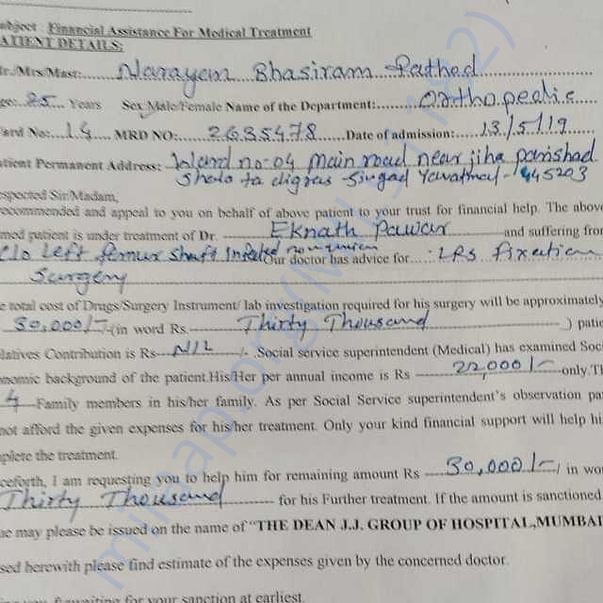 ubject : Financial Assistance For Medical Treatment
ATIENT DETAILS:
r./Mrs/Mast:...... Narayem Bhasiram Rathod
ge: 25 Years Sex Male/Female Name of the Department:...... Orthopedic
ard No: 14 MRD NO: 2635478 Date of admission: 13/5/19
tient Permanent Address: no-04 main road near jiha parishad
Shala ta digras Singad Yavatmal - 445203
espected Sir/Madam,
ecommended and appeal to you on behalf of above patient to your trust for financial help. The above
med patient is under treatment of Dr. Eknath Pawar and suffering from
c/o Left femur shaft Infected non-union Our doctor has advice for....: LRS fixation
Surgery
e total cost of Drugs/Surgery Instrument/ lab investigation required for his surgery will be approximately
30,000/- (in word Rs. Thirty Thousand ) patie
latives Contribution is Rs NIL /- .Social service superintendent (Medical) has examined Soc
onomic background of the patient.His/Her per annual income is Rs 22,000/- only.Th
4 Family members in his/her family. As per Social Service superintendent's observation pa
not afford the given expenses for his/her treatment. Only your kind financial support will help hi
plete the treatment.
ceforth, I am requesting you to help him for remaining amount Rs 30,000/- / in wor
Thirty Thousand for his Further treatment. If the amount is sanctioned
ue may please be issued on the name of "THE DEAN J.J. GROUP OF HOSPITAL,MUMBAI
sed herewith please find estimate of the expenses given by the concerned doctor.
for your sanction at earliest.